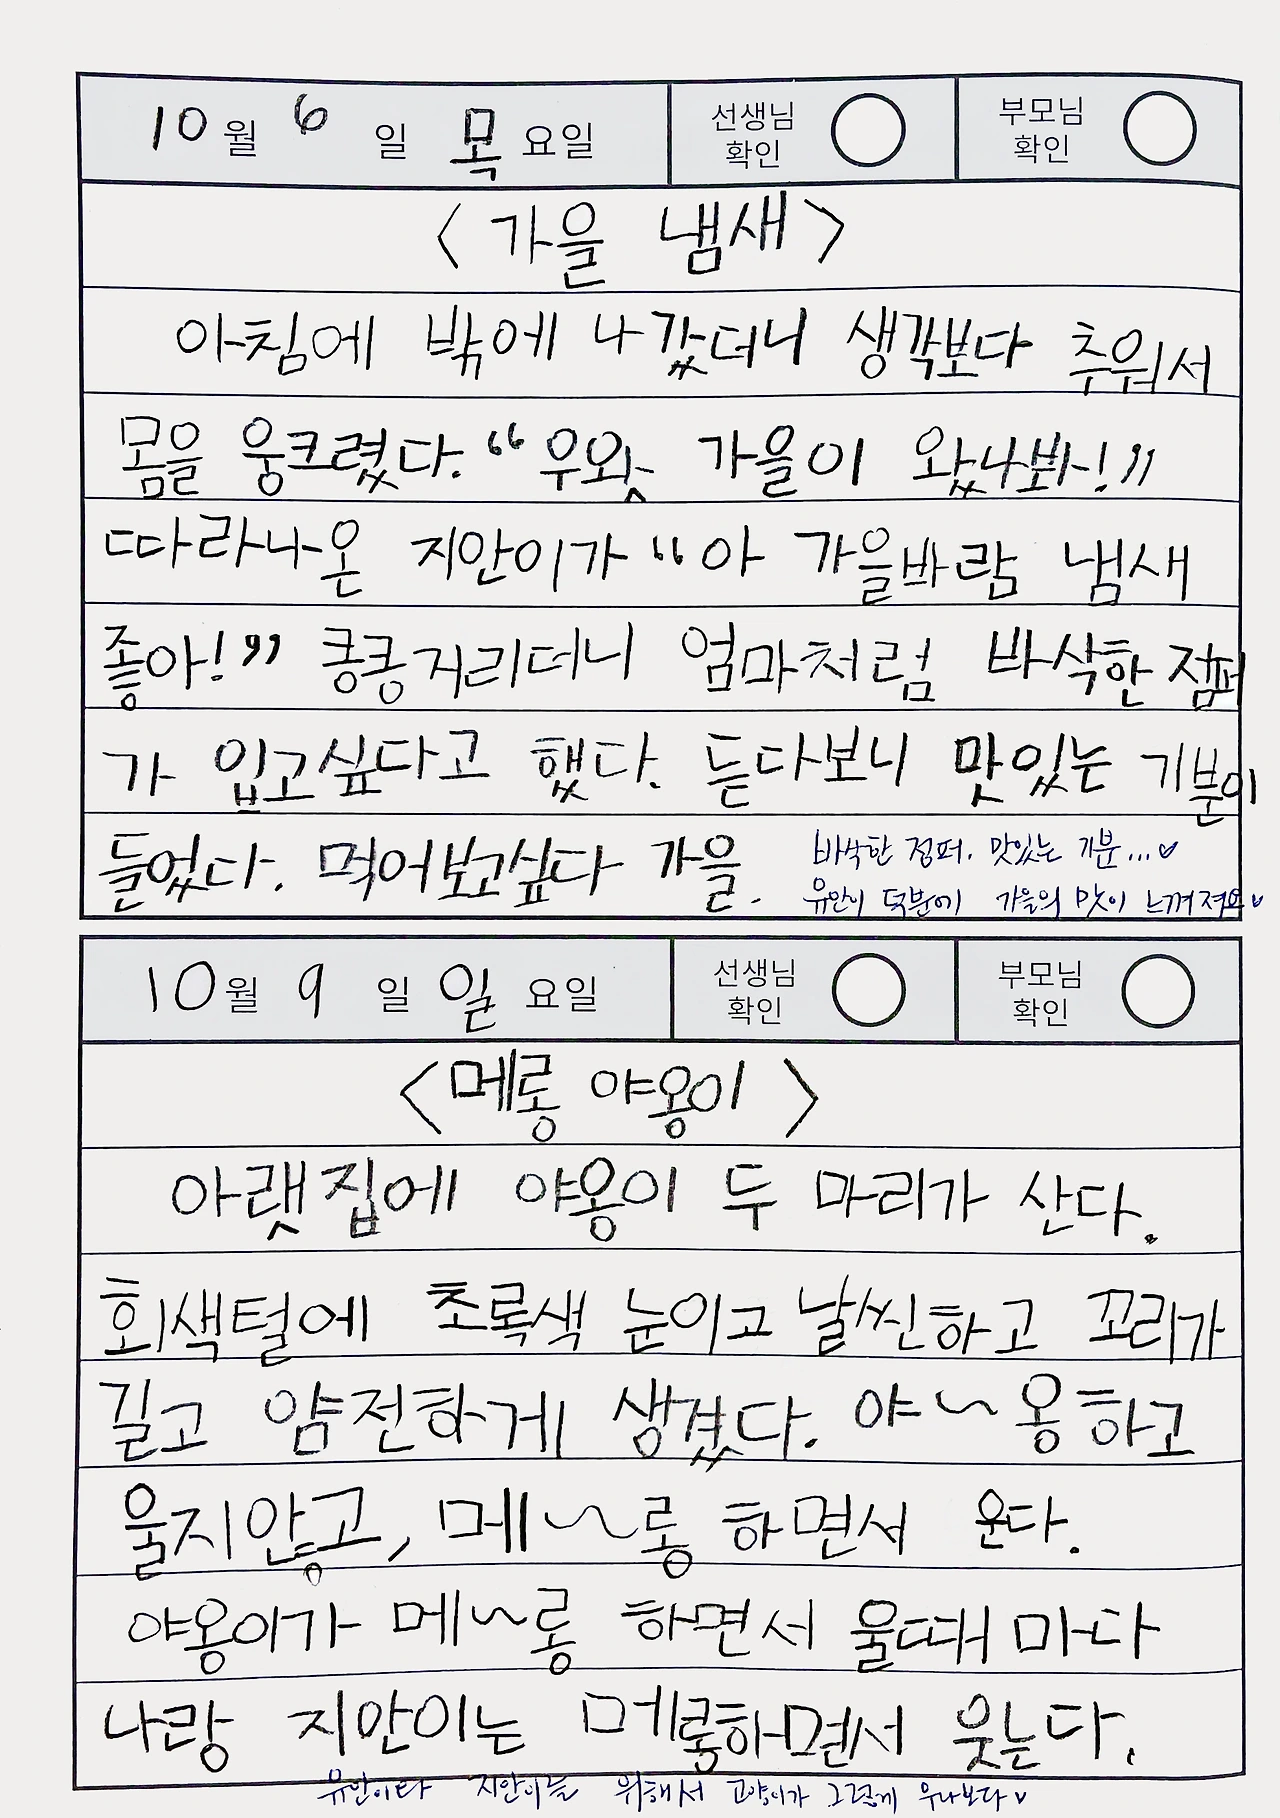 10월 6일 목요일 선생님 확인 부모님 확인
<가을 냄새>
아침에 밖에 나갔더니 생각보다 추워서
몸을 웅크렸다. "우왓 가을이 왔나봐!"
따라나온 지안이가 "아 가을바람 냄새
좋아!" 킁킁거리더니 엄마처럼 바삭한 점퍼
가 입고싶다고 했다. 듣다보니 맛있는 기분이
들었다. 먹어보고싶다 가을.
바삭한 점퍼. 맛있는 기분...♡
유안이 덕분에 가을의 맛이 느껴져요♡
10월 9일 일요일 선생님 확인 부모님 확인
<메롱 야옹이>
아랫집에 야옹이 두 마리가 산다.
회색털에 초록색 눈이고 날씬하고 꼬리가
길고 얌전하게 생겼다. 야~옹하고
울지않고, 메~롱 하면서 운다.
야옹이가 메~롱 하면서 울때마다
나랑 지안이는 메롱하면서 웃는다.
유안이랑 지안이를 위해서 고양이가 그렇게 우나보다♡